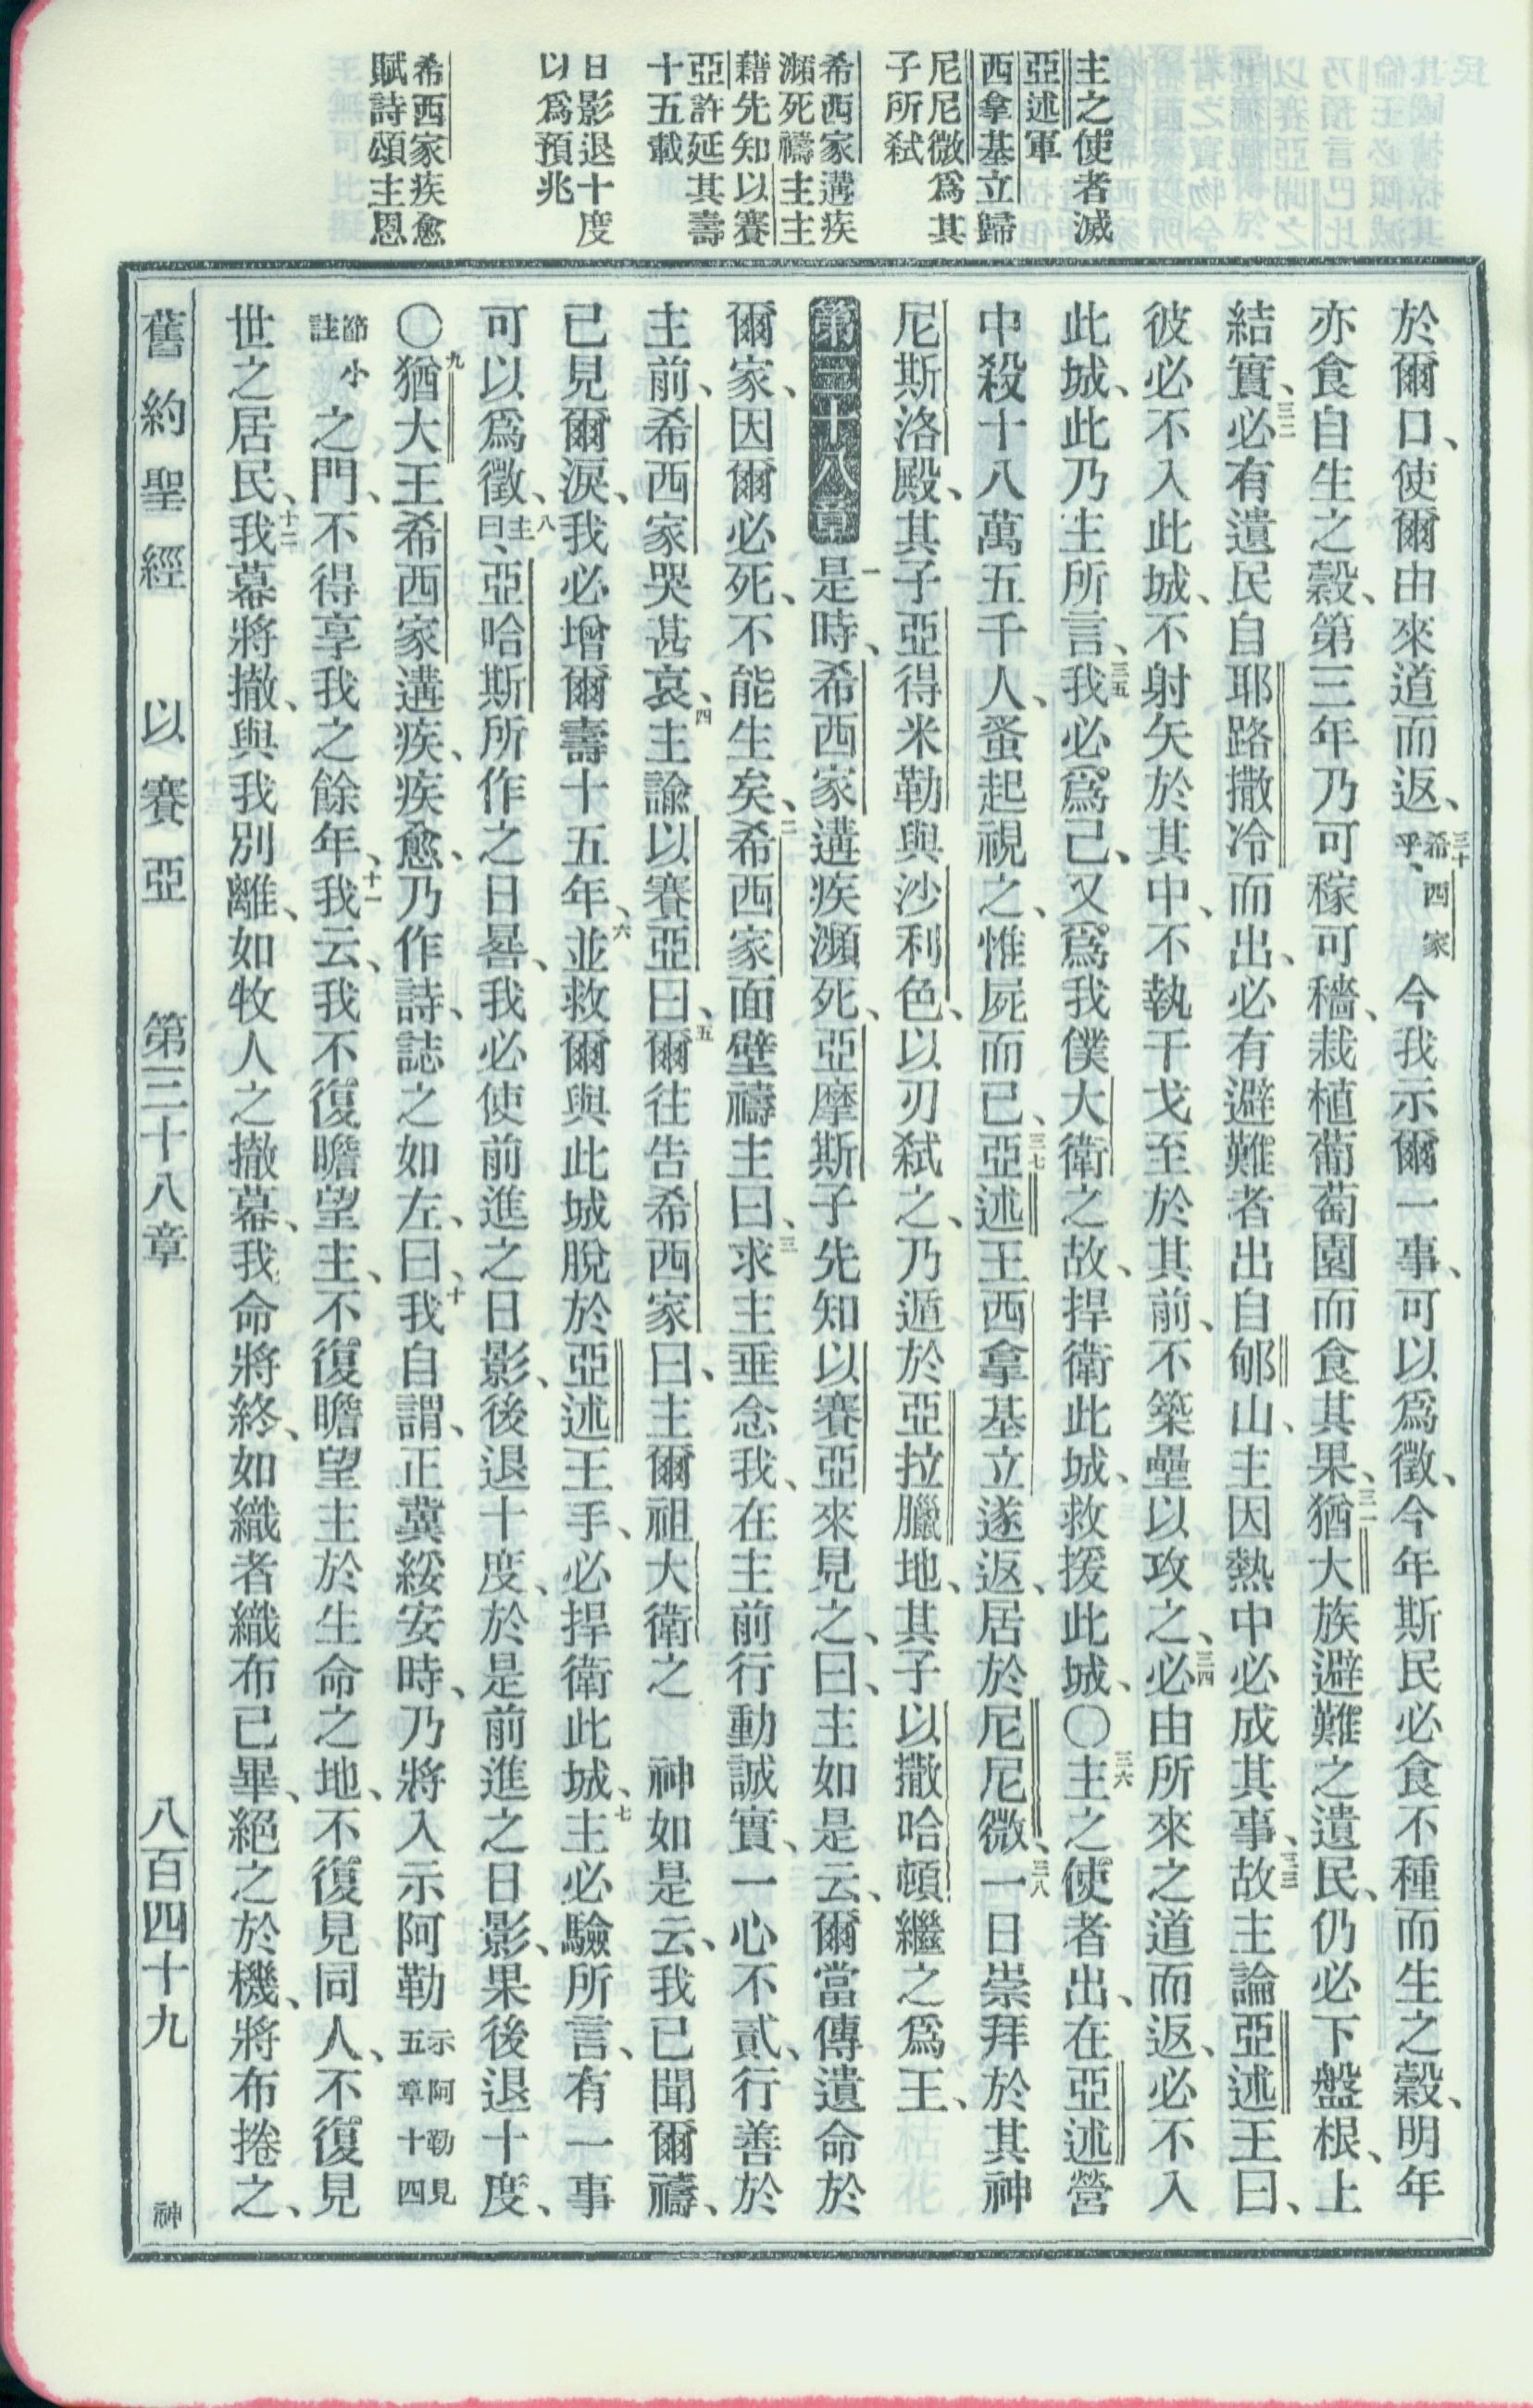 主之使者滅
亞述軍
西拿基立歸
尼尼微爲其
子所弒
希西家遘疾
瀕死禱主主
藉先知以賽
亞許延其壽
十五載
日影退十度
以爲預兆
希西家疾愈
賦詩頌主恩
於爾口、使爾由來道而返、三十希西家乎、今我示爾一事、可以爲徵、今年斯民必食不種而生之穀、明年
亦食自生之穀、第三年乃可稼可穡、栽植葡萄園而食其果、三一猶大族避難之遺民、仍必下盤根、上
結實、三二必有遺民自耶路撒冷而出、必有避難者出自郇山、主因熱中必成其事、三三故主論亞述王曰、
彼必不入此城、不射矢於其中、不執干戈至於其前、不築壘以攻之、三四必由所來之道而返、必不入
此城、此乃主所言、三五我必爲己、又爲我僕大衛之故、捍衛此城、救援此城、〇三六主之使者出、在亞述營
中殺十八萬五千人、蚤起視之、惟屍而已、三七亞述王西拿基立遂返、居於尼尼微、三八一日崇拜於其神
尼斯洛殿、其子亞得米勒與沙利色、以刃弒之、乃遁於亞拉臘地、其子以撒哈頓繼之爲王、
第三十八章 一是時、希西家遘疾瀕死、亞摩斯子先知以賽亞來見之、曰、主如是云、爾當傳遺命於
爾家、因爾必死、不能生矣、二希西家面壁禱主曰、三求主垂念我、在主前行動誠實、一心不貳、行善於
主前、希西家哭甚哀、四主諭以賽亞曰、五爾往告希西家曰、主爾祖大衛之 神如是云、我已聞爾禱、
已見爾淚、我必增爾壽十五年、六並救爾與此城脫於亞述王手、必捍衛此城、七主必驗所言、有一事
可以爲徵、八主曰、亞哈斯所作之日晷、我必使前進之日影、後退十度、於是前進之日影、果後退十度、
〇九猶大王希西家遘疾、疾愈、乃作詩、誌之如左、曰、十我自謂、正冀綏安時、乃將入示阿勒示阿勒見五章十四
節小註之門、不得享我之餘年、十一我云、我不復瞻望主、不復瞻望主於生命之地、不復見同人、不復見
世之居民、十二我幕將撤、與我別離、如牧人之撤幕、我命將終、如織者織布已畢、絕之於機、將布捲之、
舊約聖經 以賽亞 第三十八章 八百四十九 神